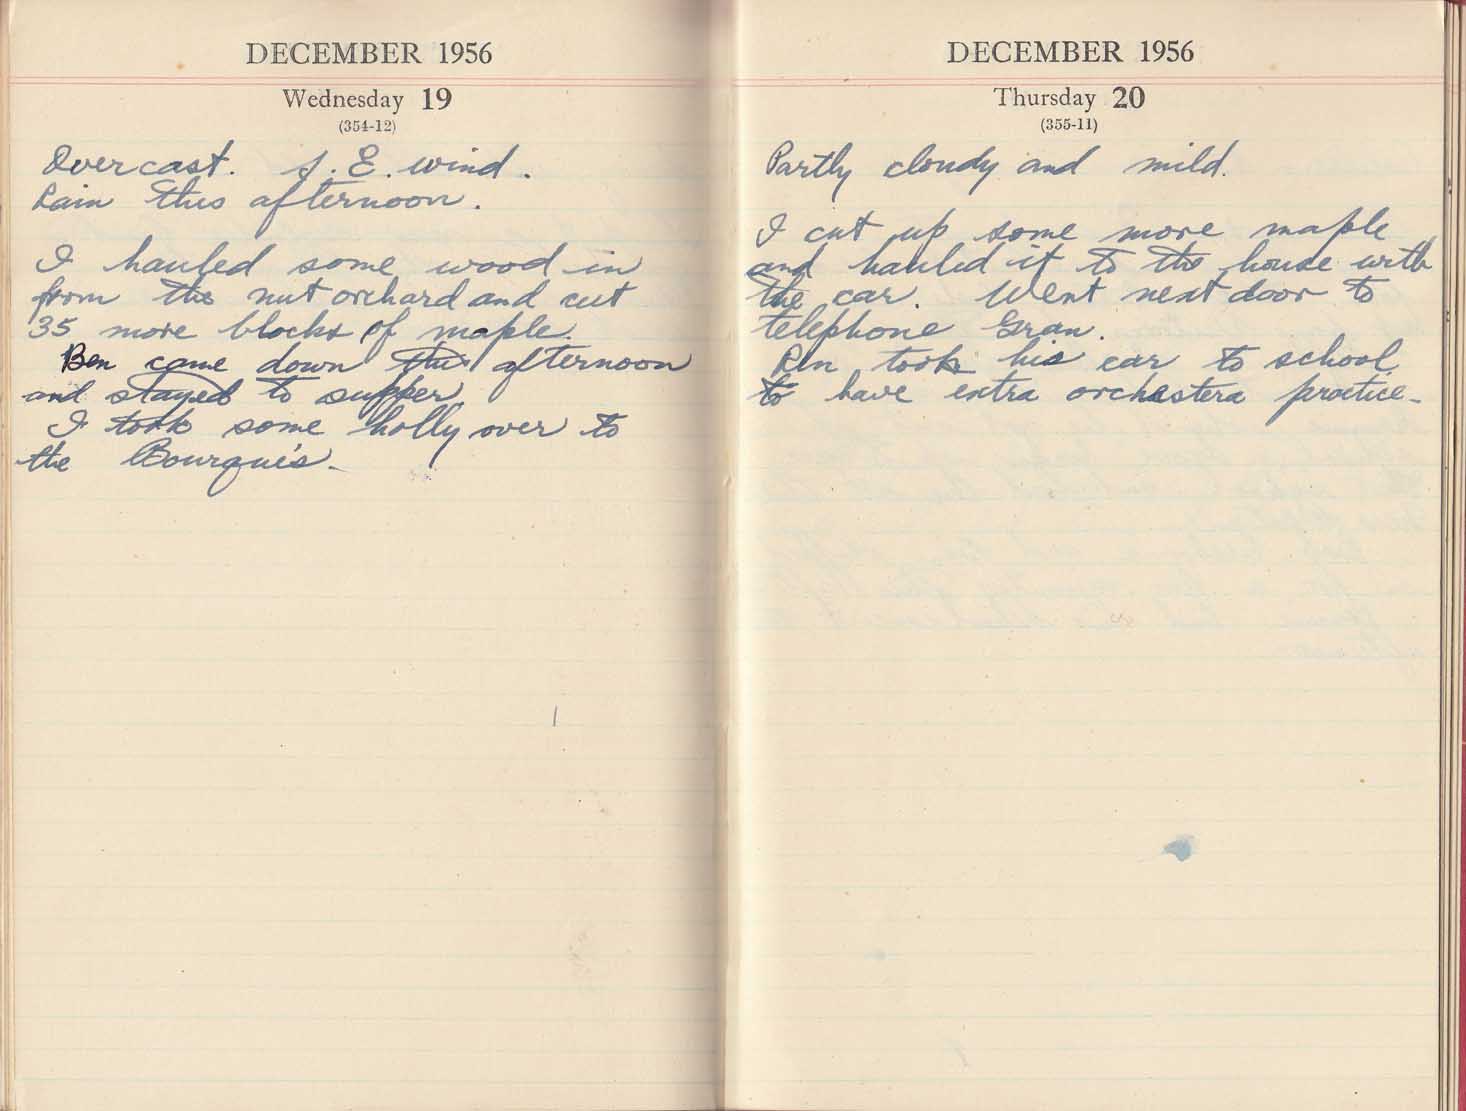 DECEMBER 1956
Wednesday 19
(354-12)
Overcast. S. E. wind.
Rain this afternoon.
I hauled some wood in
from the nut orchard and cut
35 more blocks of maple.
Ben came down this afternoon
and stayed to supper.
I took some holly over to
the Bourque's.
DECEMBER 1956
Thursday 20
(355-11)
Partly cloudy and mild.
I cut up some more maple
and hauled it to the house with
the car. Went next door to
telephone Gran.
took his car to school
to have extra orchestera practice.